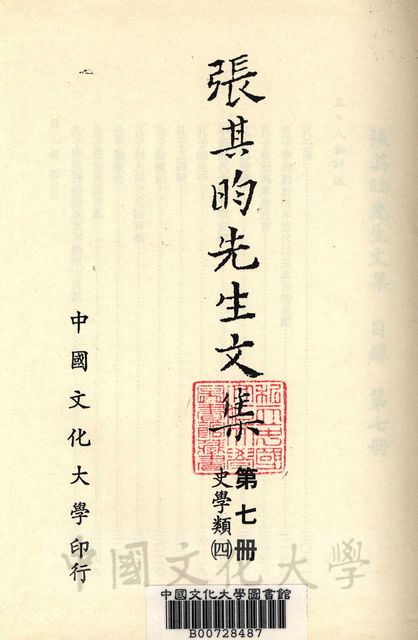 張其昀先生文集
第七冊
史學類㈣
中國文化大學印行
中國文化大學
中國文化大學圖書館
B00728487